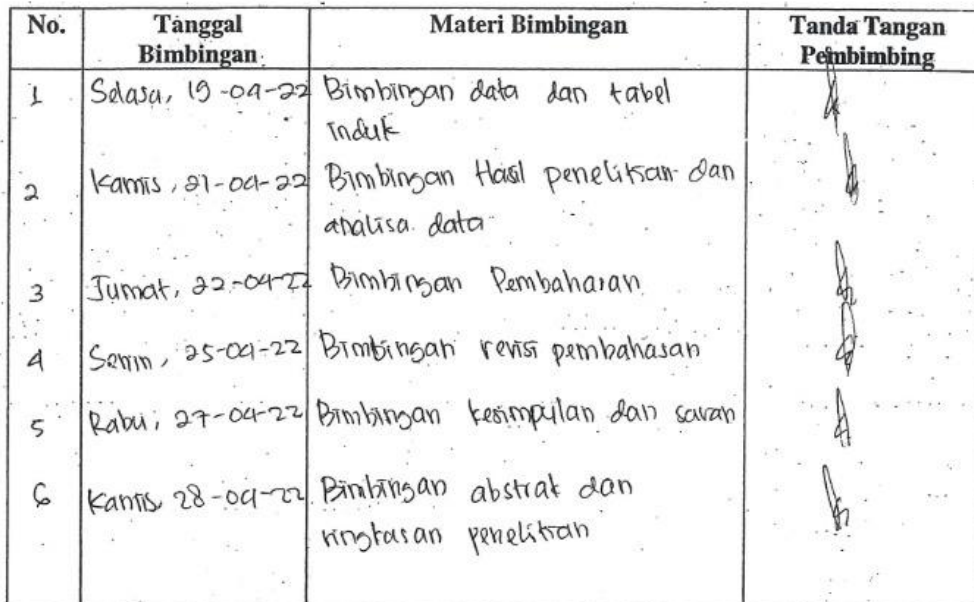 No. Tanggal Bimbingan Materi Bimbingan Tanda Tangan Pembimbing
1 Selasa, 19-04-22 Bimbingan data dan tabel
induk
2 Kamis, 21-04-22 Bimbingan Hasil penelitian dan
analisa data
3 Jumat, 22-04-22 Bimbingan Pembahasan
4 Senin, 25-04-22 Bimbingan revisi pembahasan
5 Rabu, 27-04-22 Bimbingan kesimpulan dan saran
6 Kamis, 28-04-22 Bimbingan abstrak dan
ringkasan penelitian